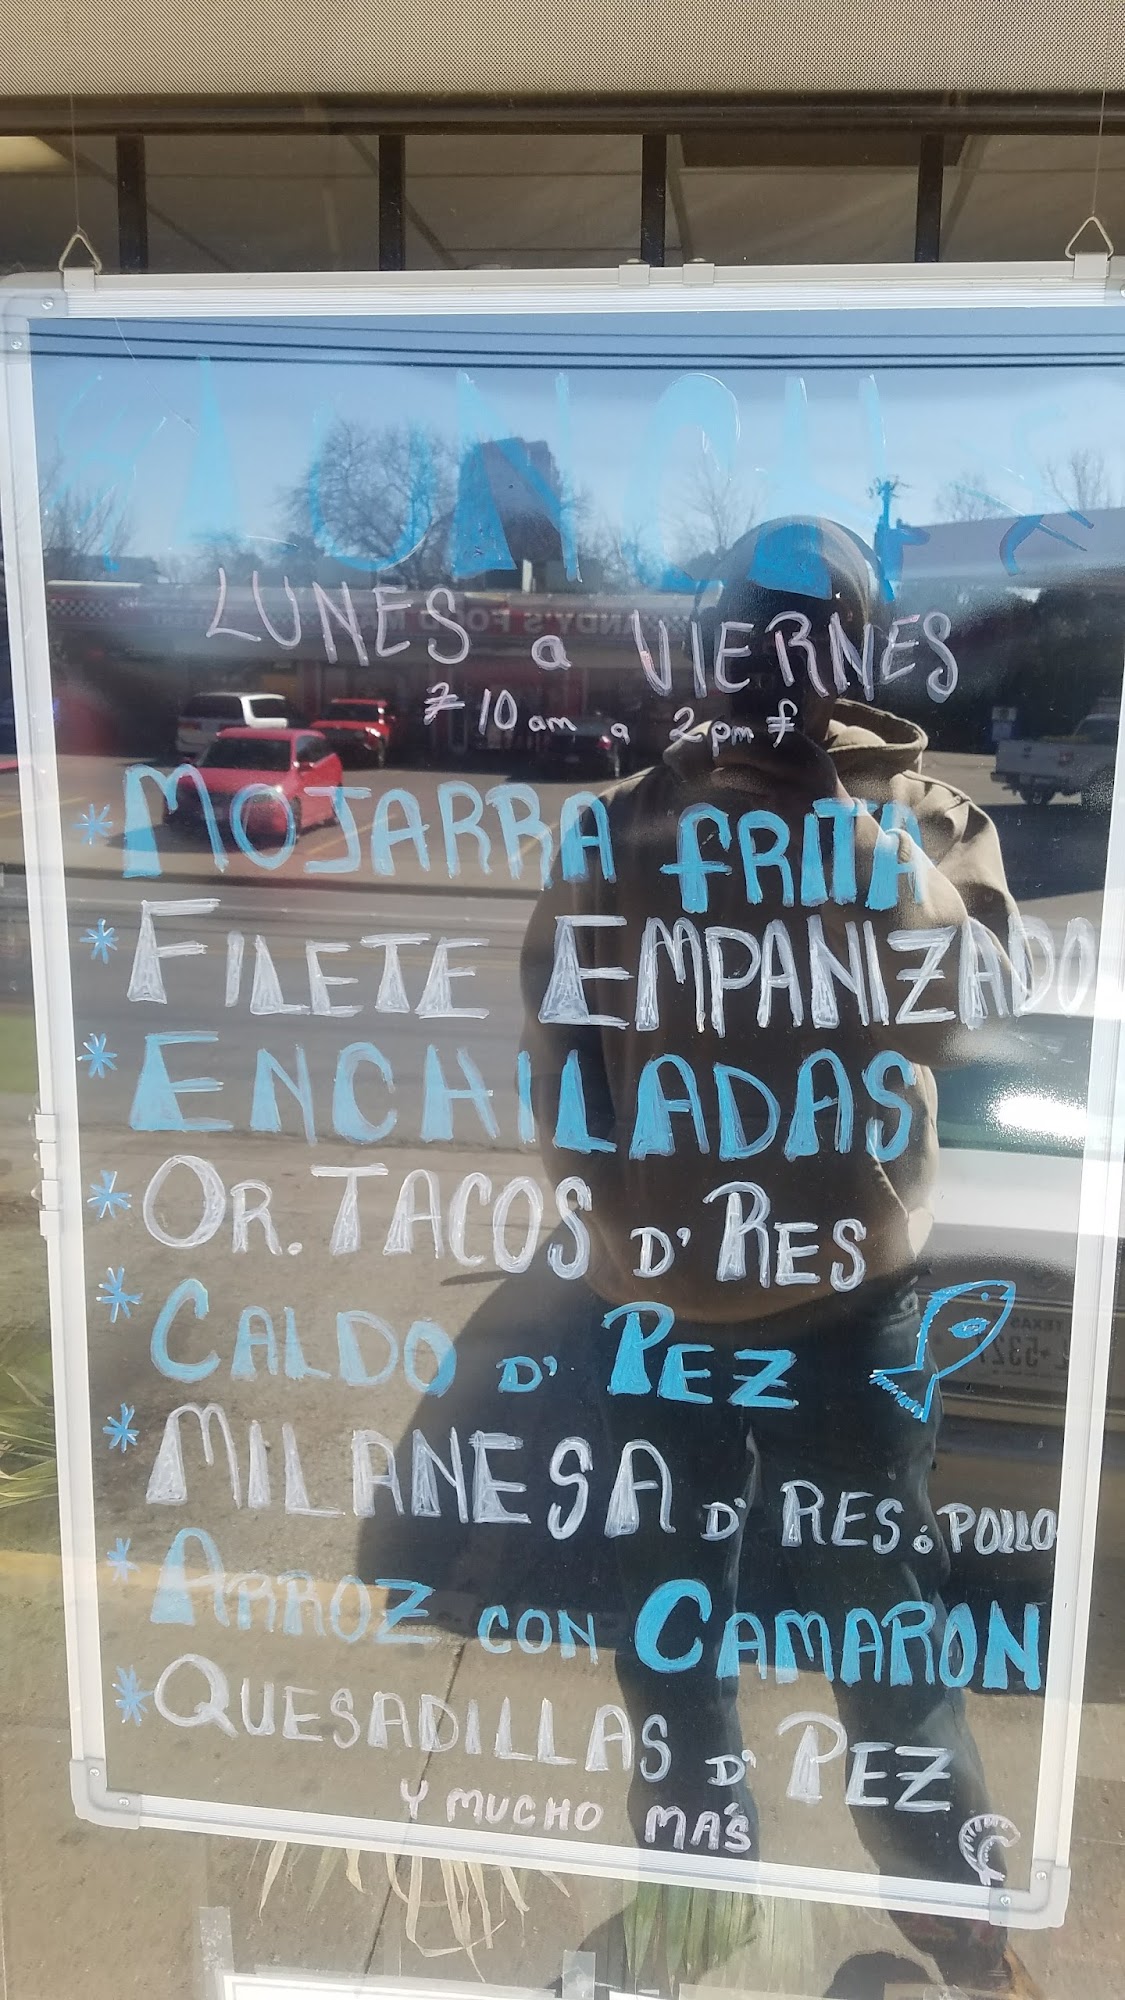 LUNCH
LUNES a VIERNES
10 am a 2 pm
* MOJARRA FRITA
* FILETE EMPANIZADO
* ENCHILADAS
* OR. TACOS D' RES
* CALDO D' PEZ
* MILANESA D' RES ó POLLO
* ARROZ CON CAMARON
* QUESADILLAS D' PEZ
Y MUCHO MÁS